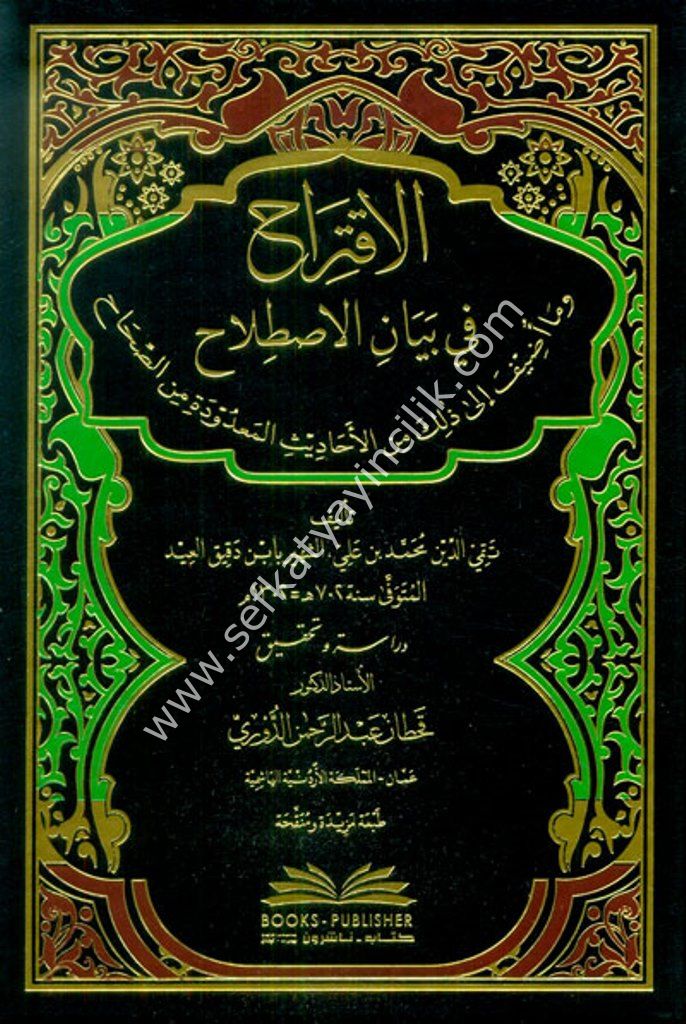 الاقتراح
في بيان الاصطلاح
وما أضيف إلى ذلك من الأحاديث المعدودة من الصحاح
تأليف
تقي الدين محمد بن علي بابن دقيق العيد
المتوفى سنة ٧٠٢هـ =
دراسة وتحقيق
الأستاذ الدكتور
قحطان عبد الرحمن الدوري
عمان - المملكة الأردنية الهاشمية
طبعة مزيدة ومنقحة
BOOKS - PUBLISHER
كتاب - ناشرون
www.sefkatyayincilik.com